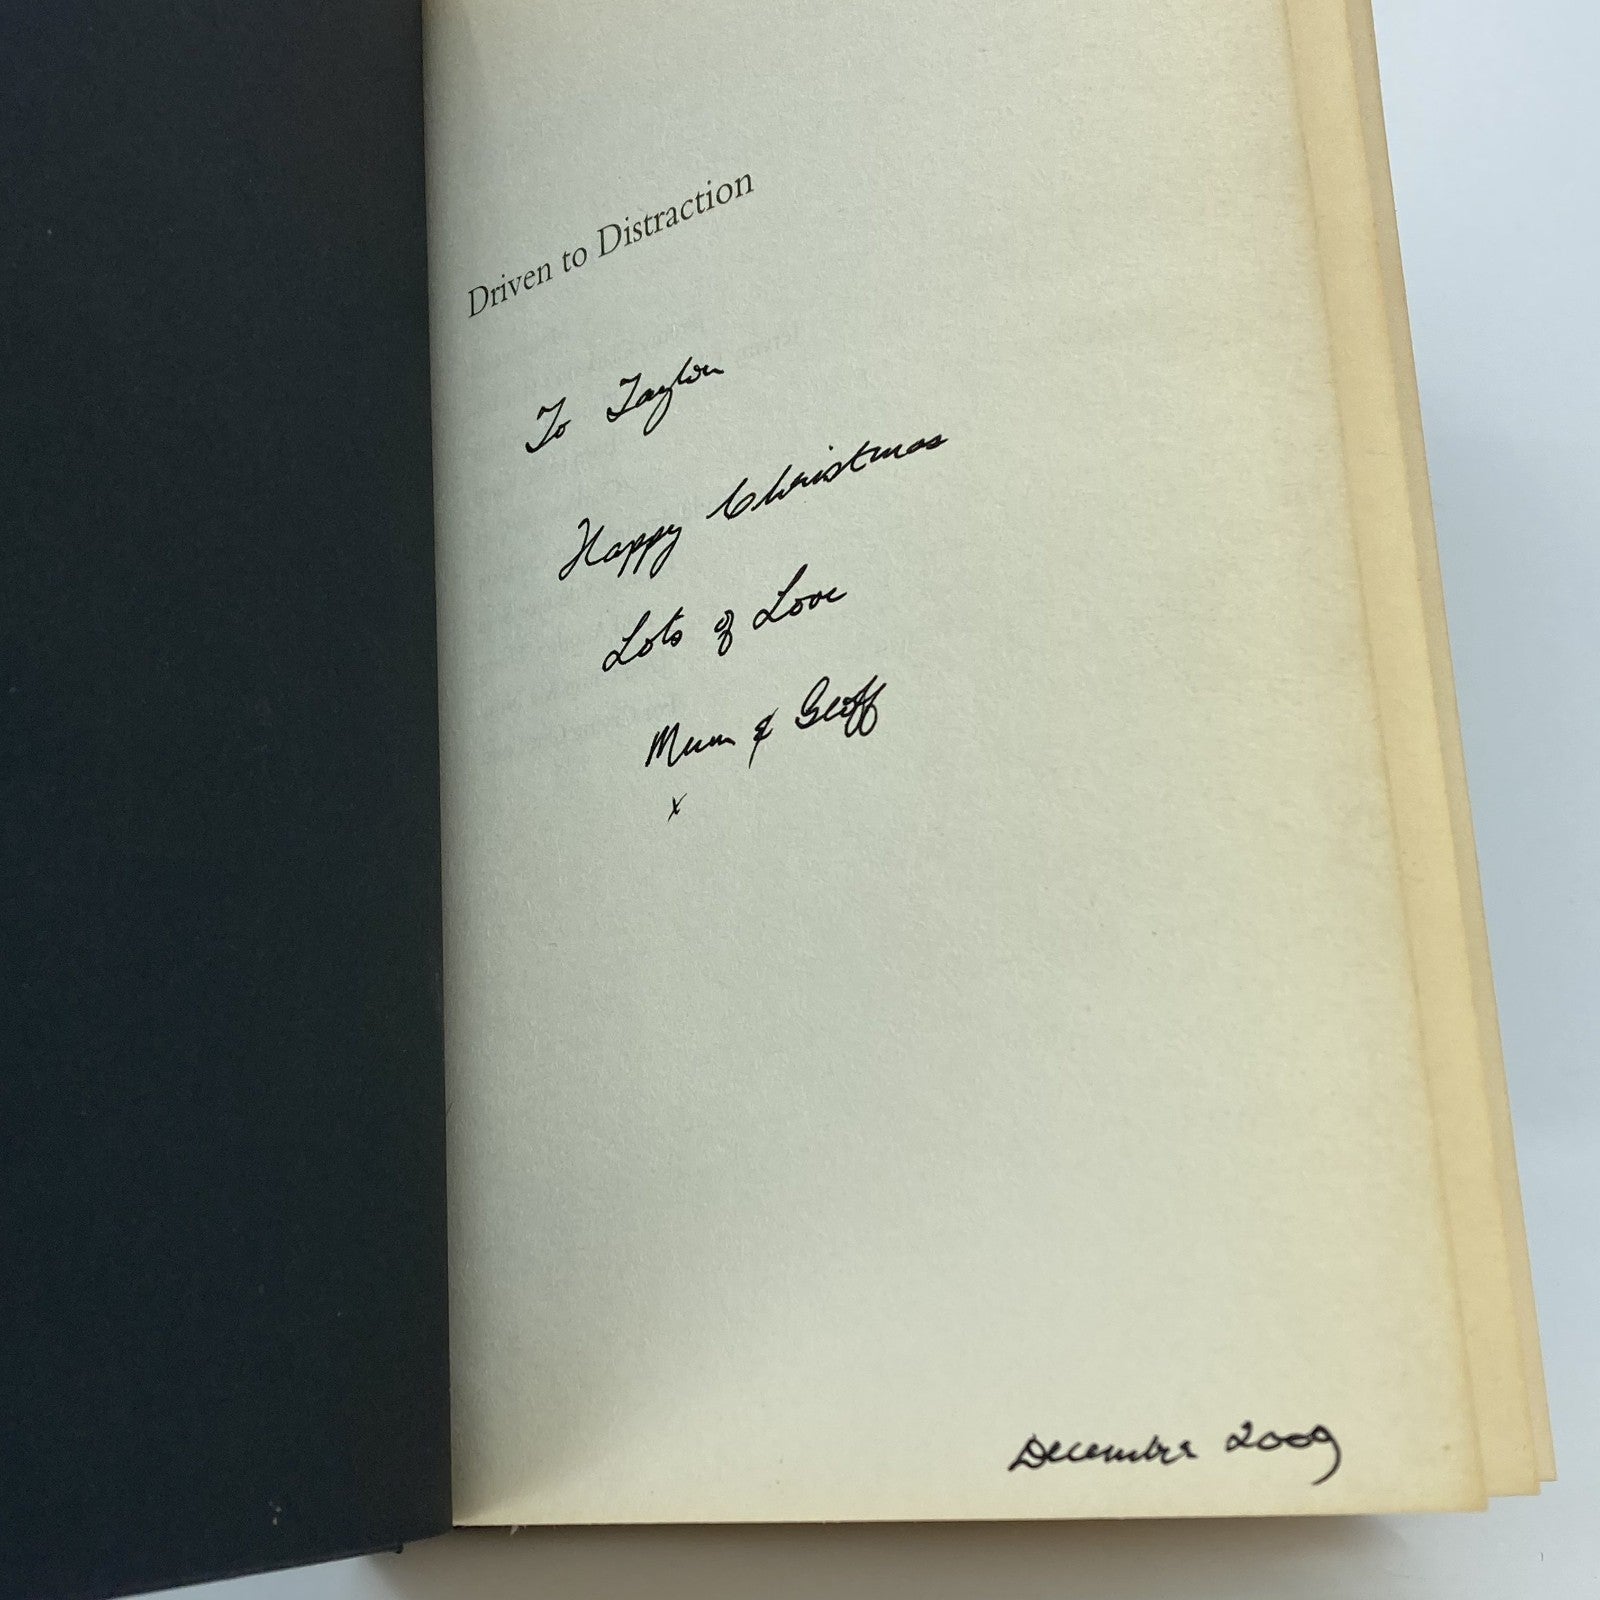 Driven to Distraction
To Taylor
Happy Christmas
Lots of Love
Mum & Geoff
x
December 2009